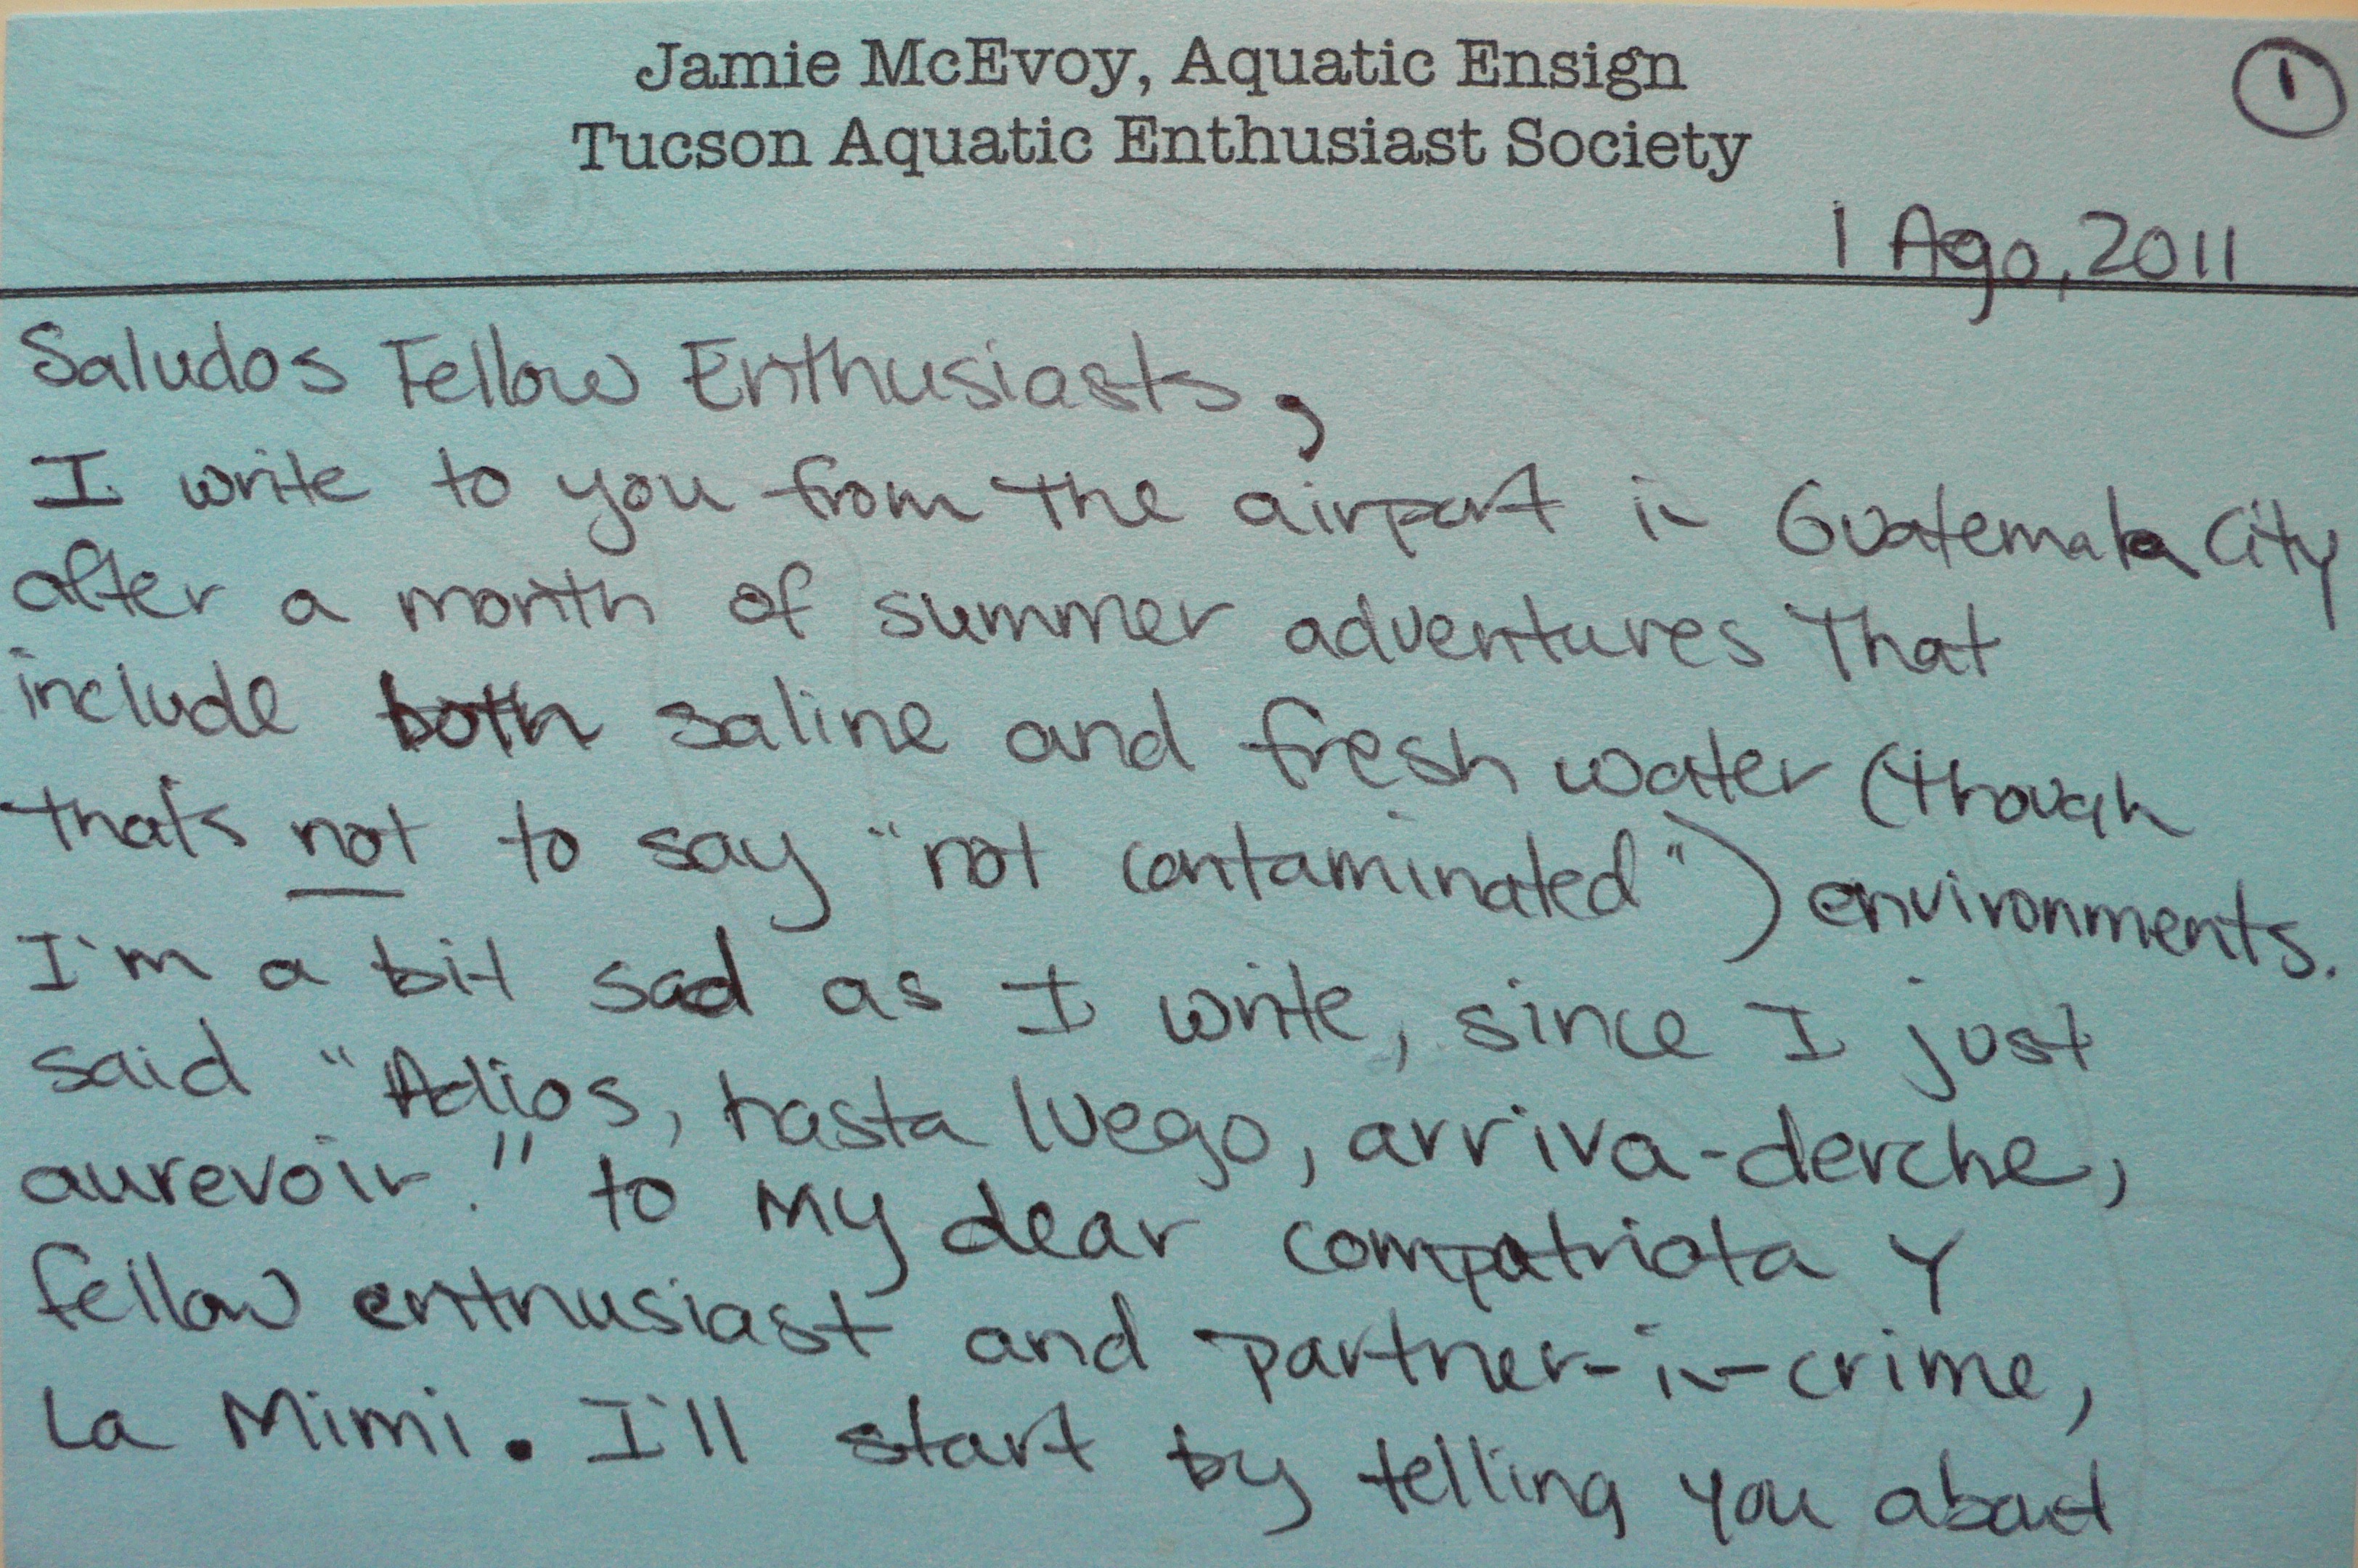 Jamie McEvoy, Aquatic Ensign
1
Tucson Aquatic Enthusiast Society
1 Ago, 2011
Saludos Fellow Enthusiasts,
I write to you from the airport in Guatemala City
after a month of summer adventures that
include both saline and fresh water (though
that's not to say "not contaminated") environments.
I'm a bit sad as I write, since I just
said "Adios, hasta luego, arriva-derche,
aurevoir." to my dear compatriota y
fellow enthusiast and partner-in-crime,
La Mimi. I'll start by telling you about